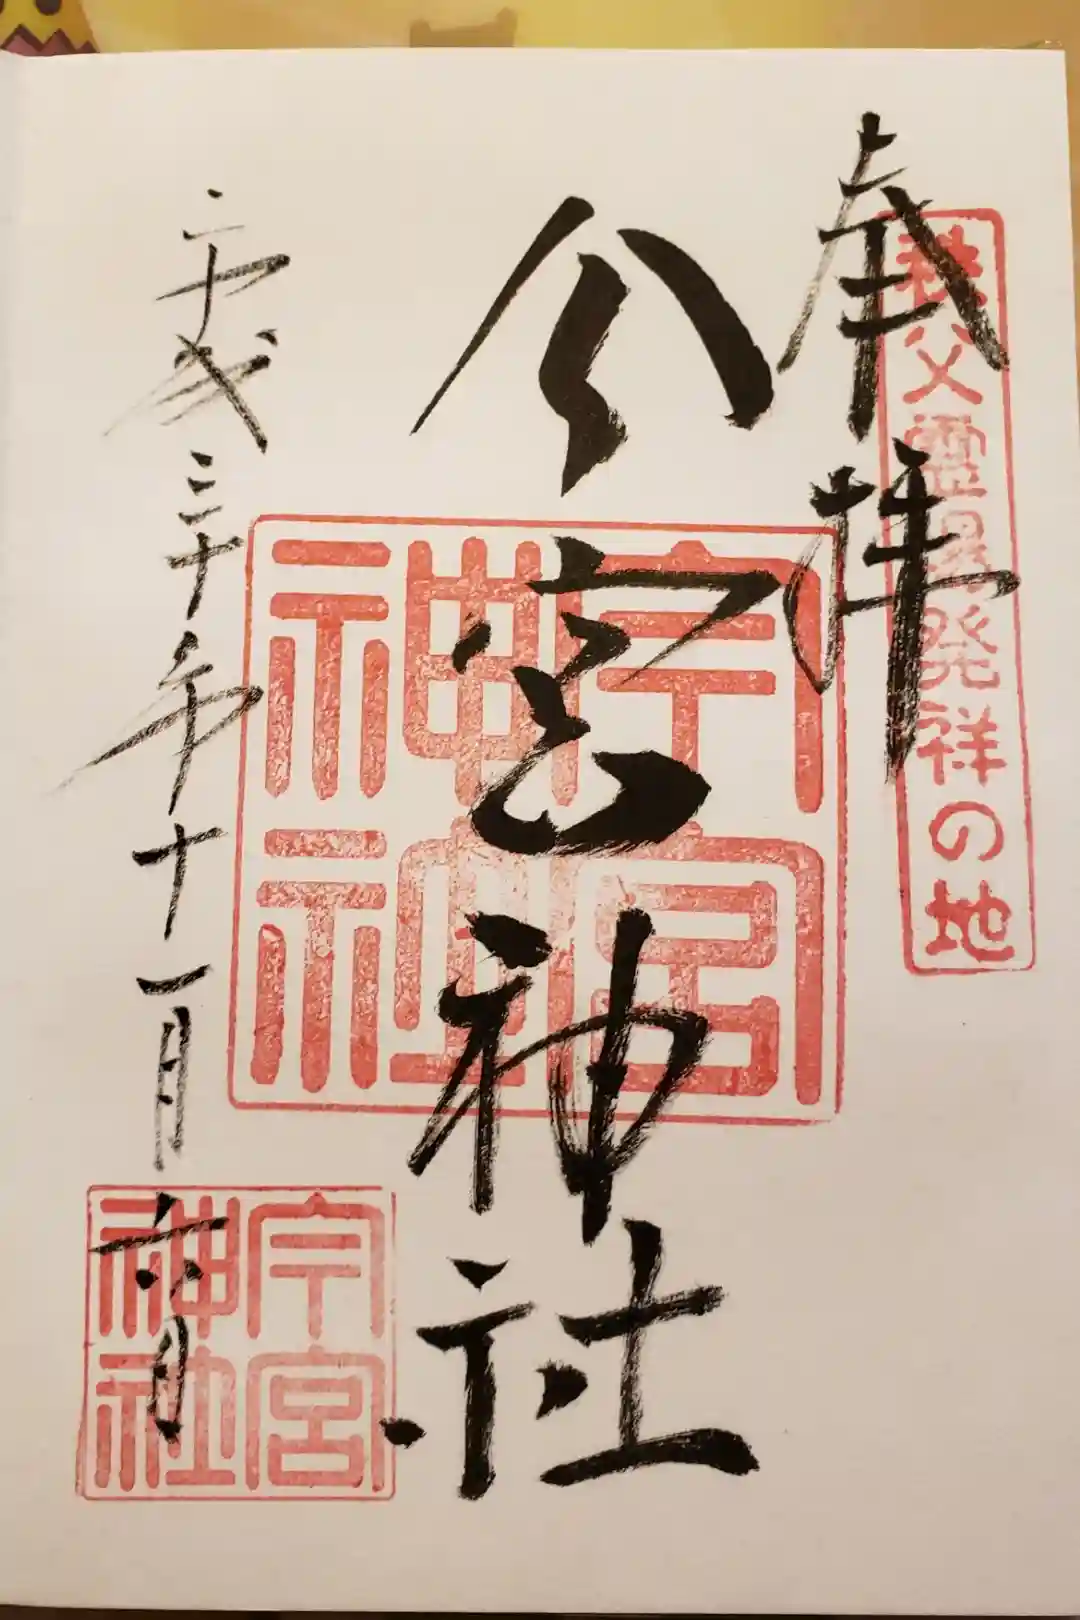 奉拝
秩父霊場発祥の地
今宮神社
今宮神社
平成三十年十一月
今宮神社